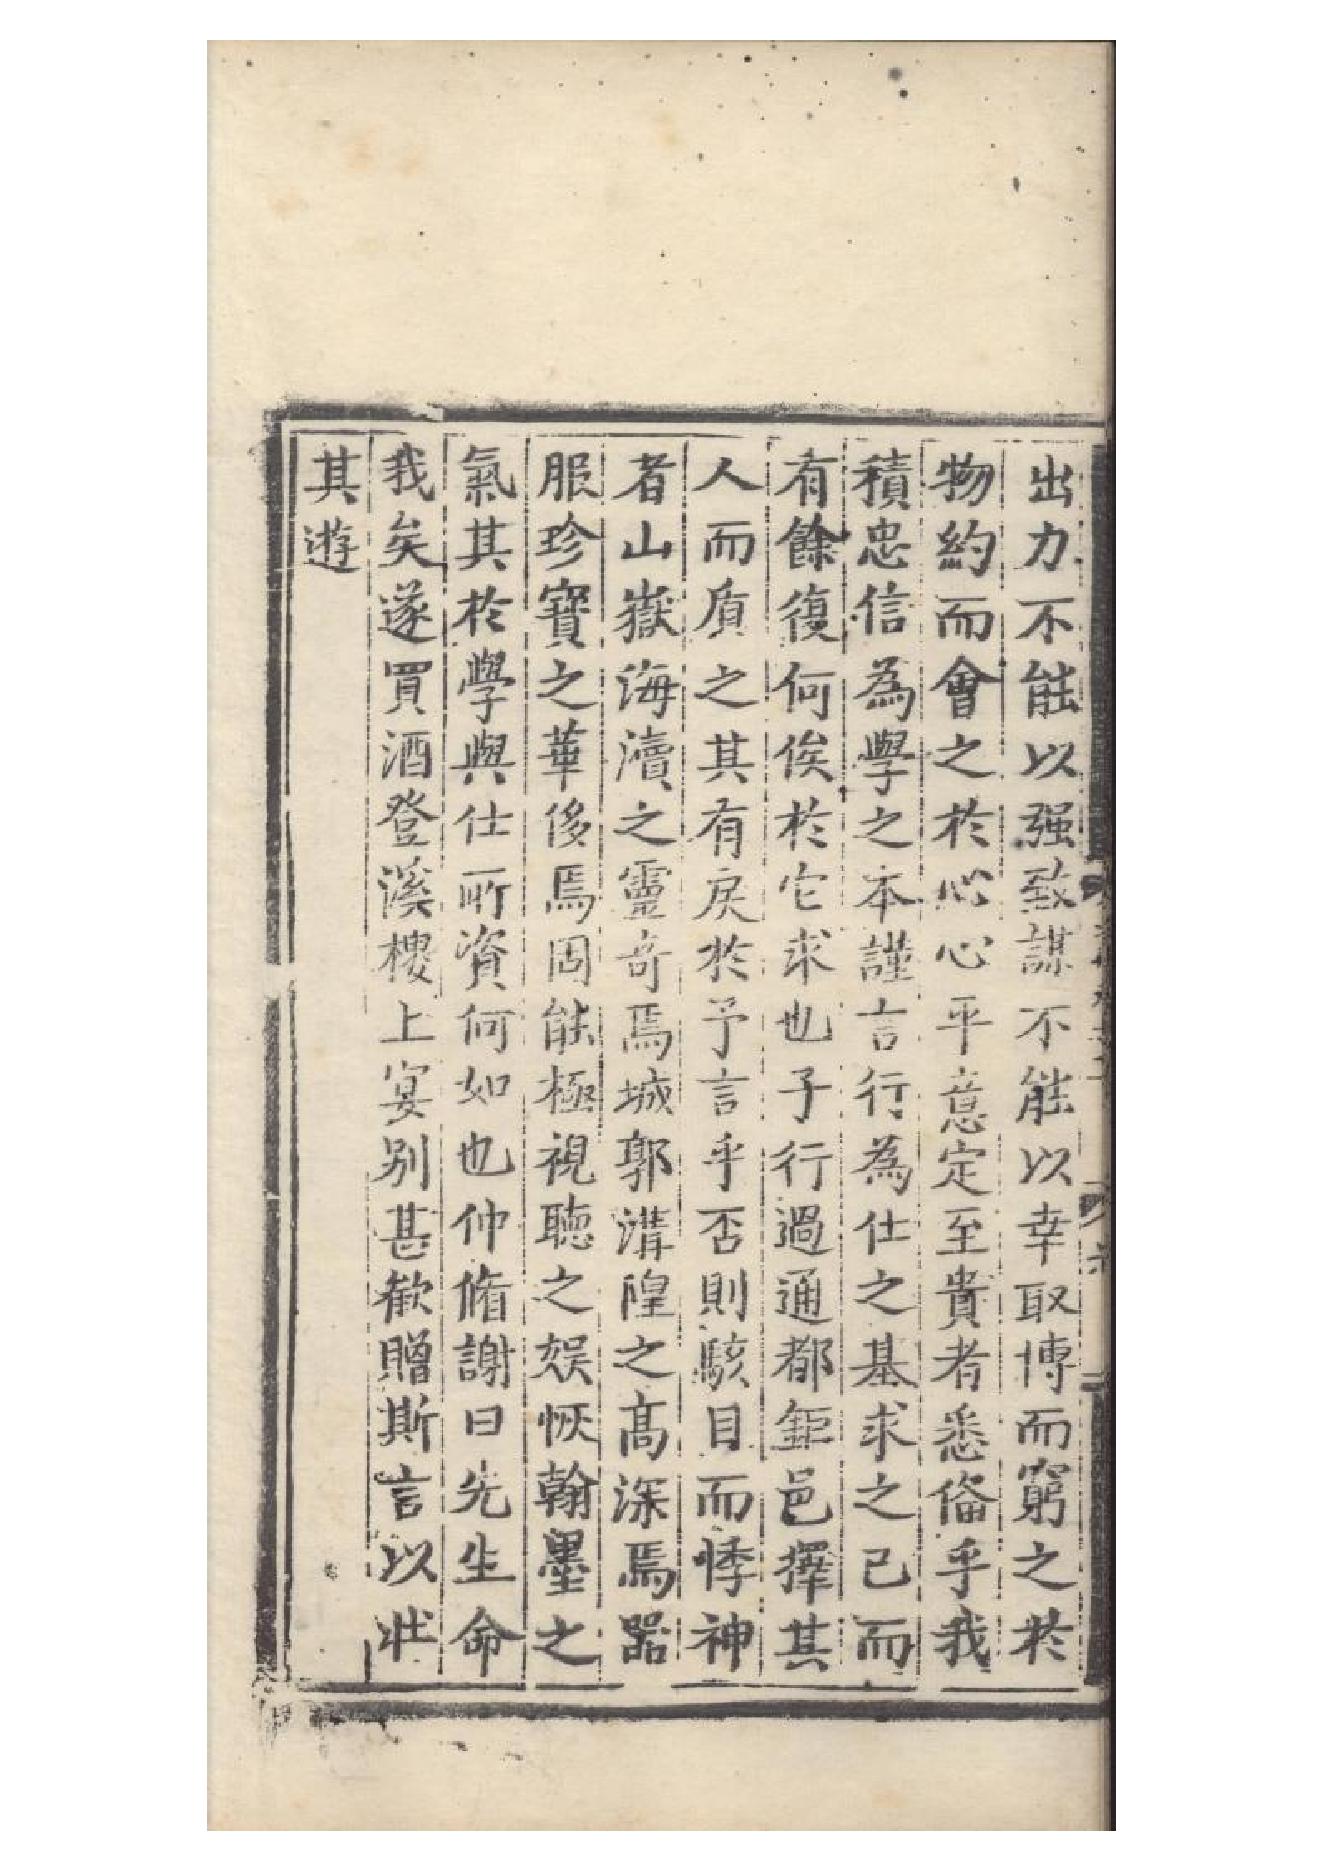 出力不能以强致謀不能以幸取博而窮之於
物約而會之於心心平意定至貴者悉俻乎我
積忠信為學之本謹言行為仕之基求之已而
有餘復何俟於它求也子行過通都鉅邑擇其
人而質之其有戾於予言乎否則駭目而悸神
者山嶽海瀆之靈奇焉城郭溝隍之髙深焉器
服珍寶之華侈焉固能極視聴之娱恢翰墨之
氣其於學與仕所資何如也仲脩謝曰先生命
我矣遂買酒登溪樓上宴别甚歡贈斯言以壮
其遊